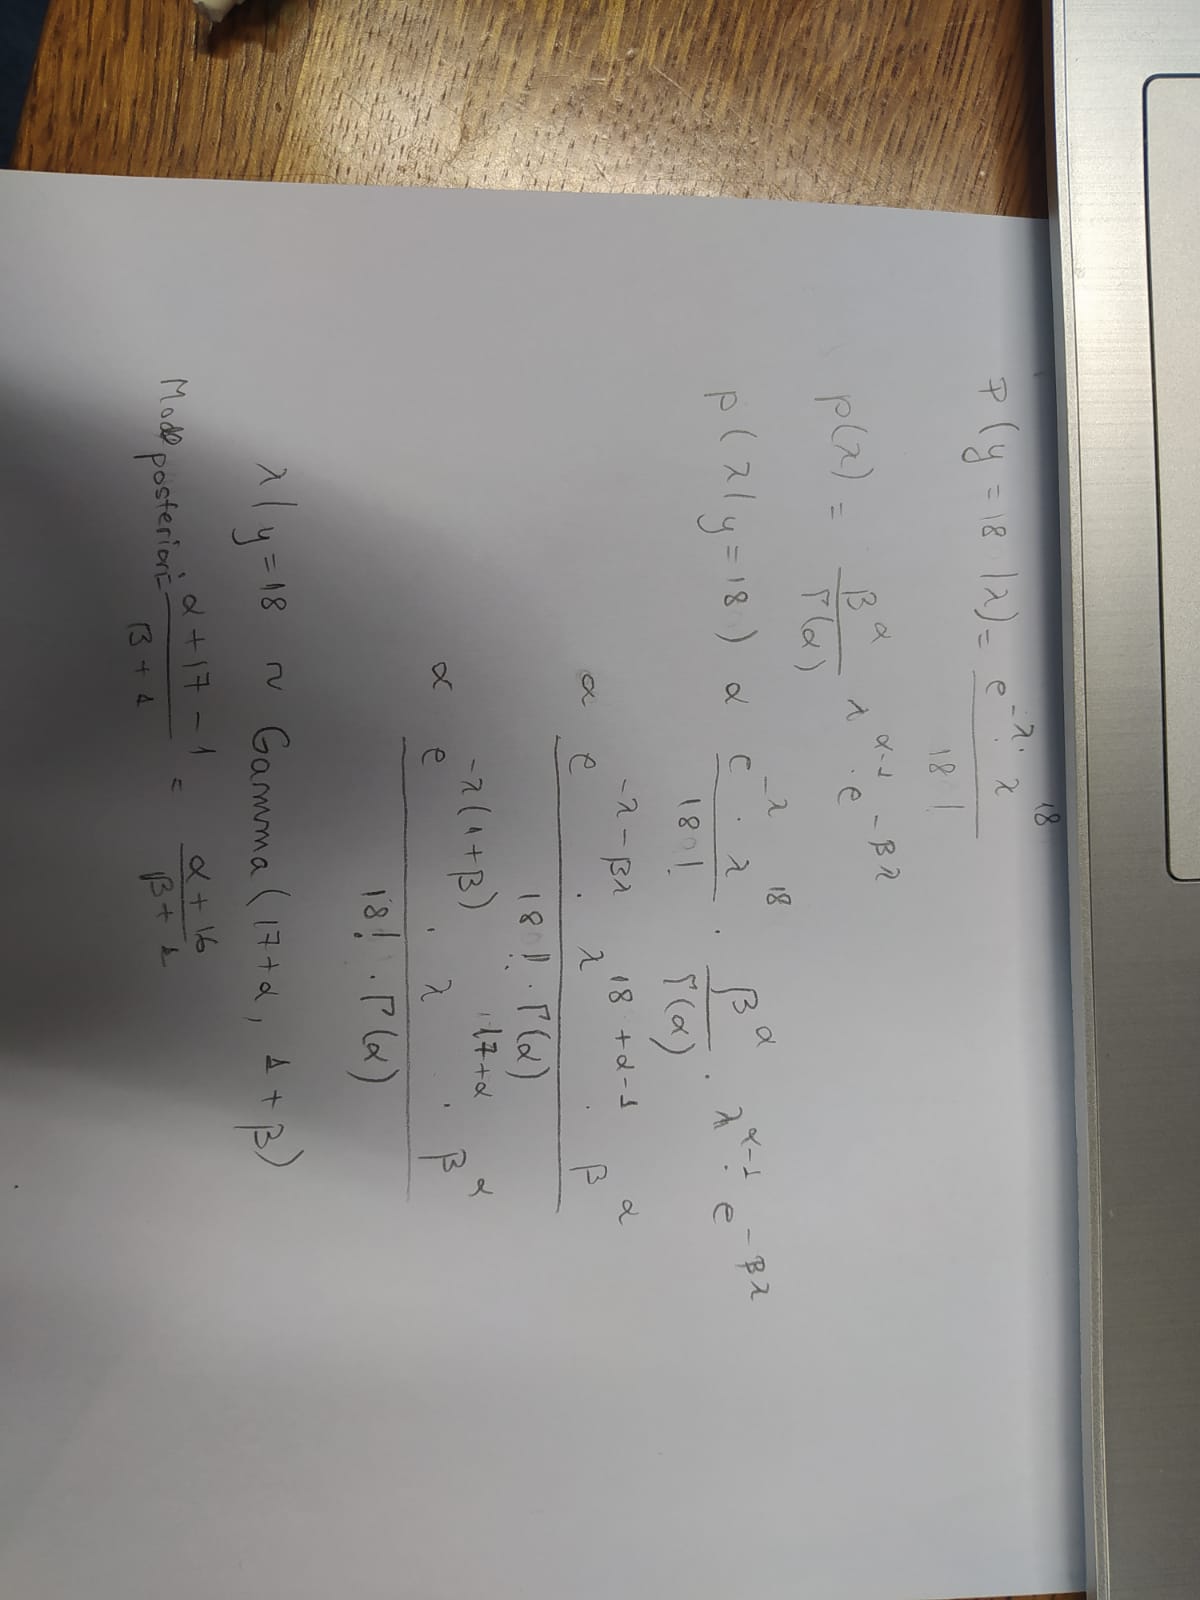 P(y=18|λ) = e^{-λ} · λ^{18} / 18!
p(λ) = β^α / Γ(α) λ^{α-1} · e^{-βλ}
p(λ|y=18) α e^{-λ} · λ^{18} / 18! · β^α / Γ(α) · λ^{α-1} · e^{-βλ}
α e^{-λ-βλ} · λ^{18+α-1} · β^α / 18! · Γ(α)
α e^{-λ(1+β)} · λ^{17+α} · β^α / 18! · Γ(α)
λ|y=18 ~ Gamma(17+α, 1+β)
Mode posteriori = α+17-1 / β+1 = α+16 / β+1